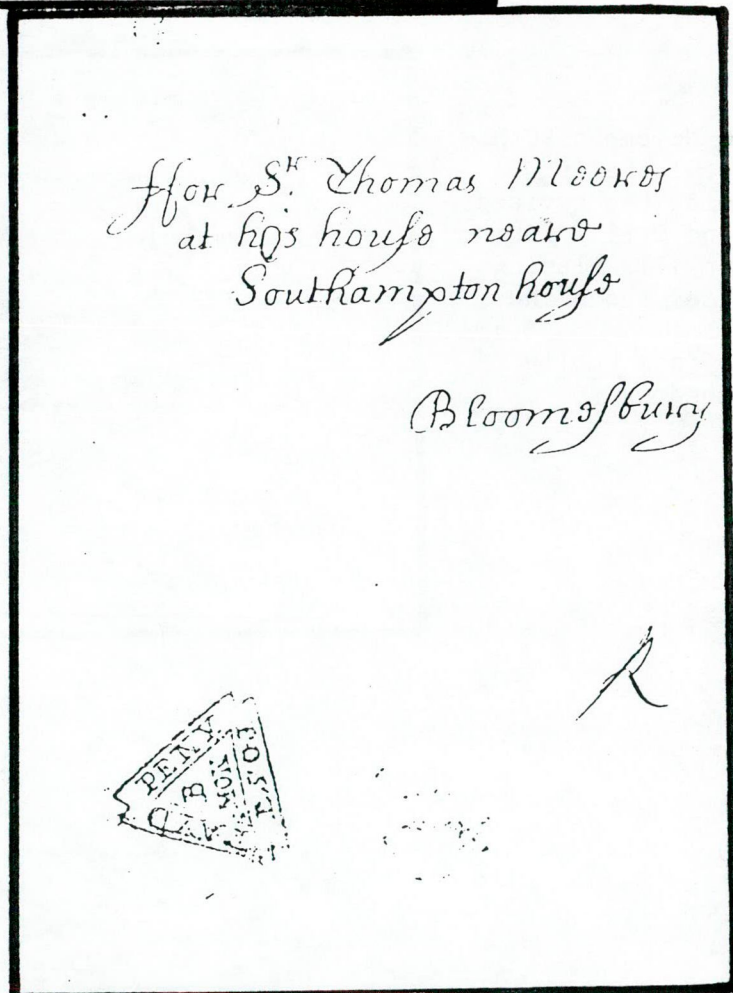 ffor Sr. Thomas Meeres
at his house neare
Southampton house
Bloomesbury
R
PENY
POST
PAYD
B
MON